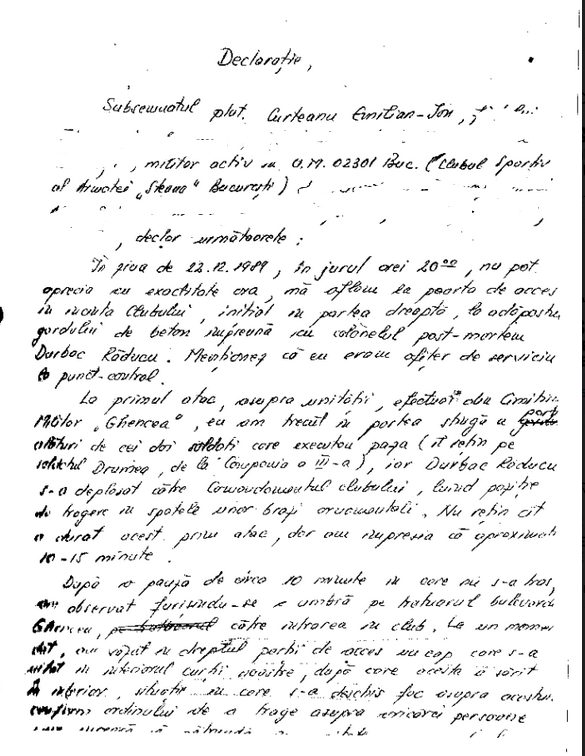 Declarație,
Subsemnatul plut. Curteanu Emilian-Ion,
, militar activ in U.M. 02301 Buc. (Clubul Sportiv
al Armatei „Steaua" București)
, declar următoarele:
În ziua de 22.12.1989, în jurul orei 20⁰⁰, nu pot
aprecia cu exactitate ora, mă aflam la poarta de acces
in incinta Clubului, inițial in partea dreaptă, la adăpostul
gardului de beton impreună cu colonelul post-mortem
Durbac Răducu. Menționez că eu eram ofițer de serviciu
la punct-control.
La primul atac, asupra unității, efectuat din Cimitirul
Militar „Ghencea", eu am trecut in partea stingă a porții
alături de cei doi soldati care executau paza (il rețin pe
soldatul Drumea, de la Compania a III-a), iar Durbac Răducu
s-a deplasat către Comandamentul clubului, luind poziție
de tragere in spatele unor brazi ornamentali. Nu rețin cit
a durat acest prim atac, dar am impresia că aproximativ
10-15 minute.
După o pauză de circa 10 minute in care nu s-a tras,
am observat furisindu-se o umbră pe trotuarul bulevardului
Ghencea, către intrarea in club. La un moment
dat, am văzut in dreptul porții de acces un cap care s-a
uitat in interiorul curții noastre, după care acesta a sărit
in interior, situație in care s-a deschis foc asupra acestuia
conform ordinului de a trage asupra oricărei persoane